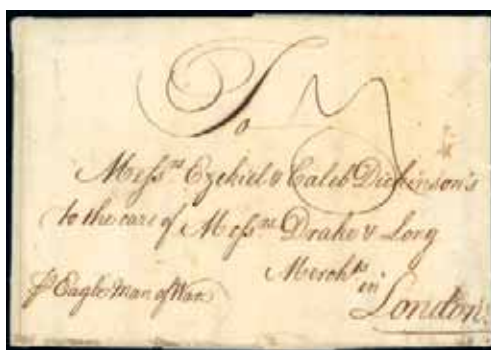 To
Messrs Ezekiel & Caleb Dickinson's
to the care of Messrs Drake & Long
Merchts
in
London
pr Eagle Man of War